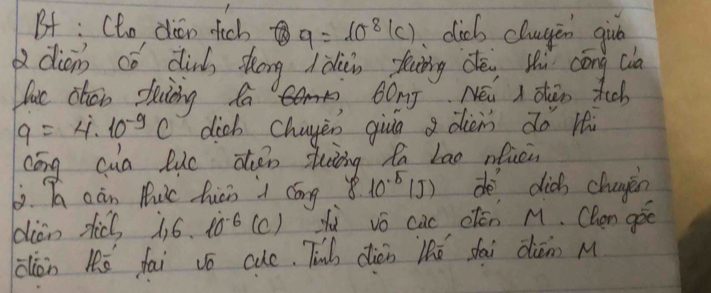 Bt : Cho điện tích q = 10⁸ (C) dịch chuyển giữa
2 điểm cố định trong 1 điện trường đều thì công của
lực điện trường là 60mJ. Nếu 1 điện tích
q = 4.10⁻⁹ C dịch chuyển giữa 2 điểm đó thì
công của lực điện trường là bao nhiêu
2. Ta cần thực hiện 1 công 8.10⁻⁵ (J) để dịch chuyển
điện tích 1,6.10⁻⁶ (C) từ vô cực đến M. Chọn gốc
điện thế tại vô cực. Tính điện thế tại điểm M